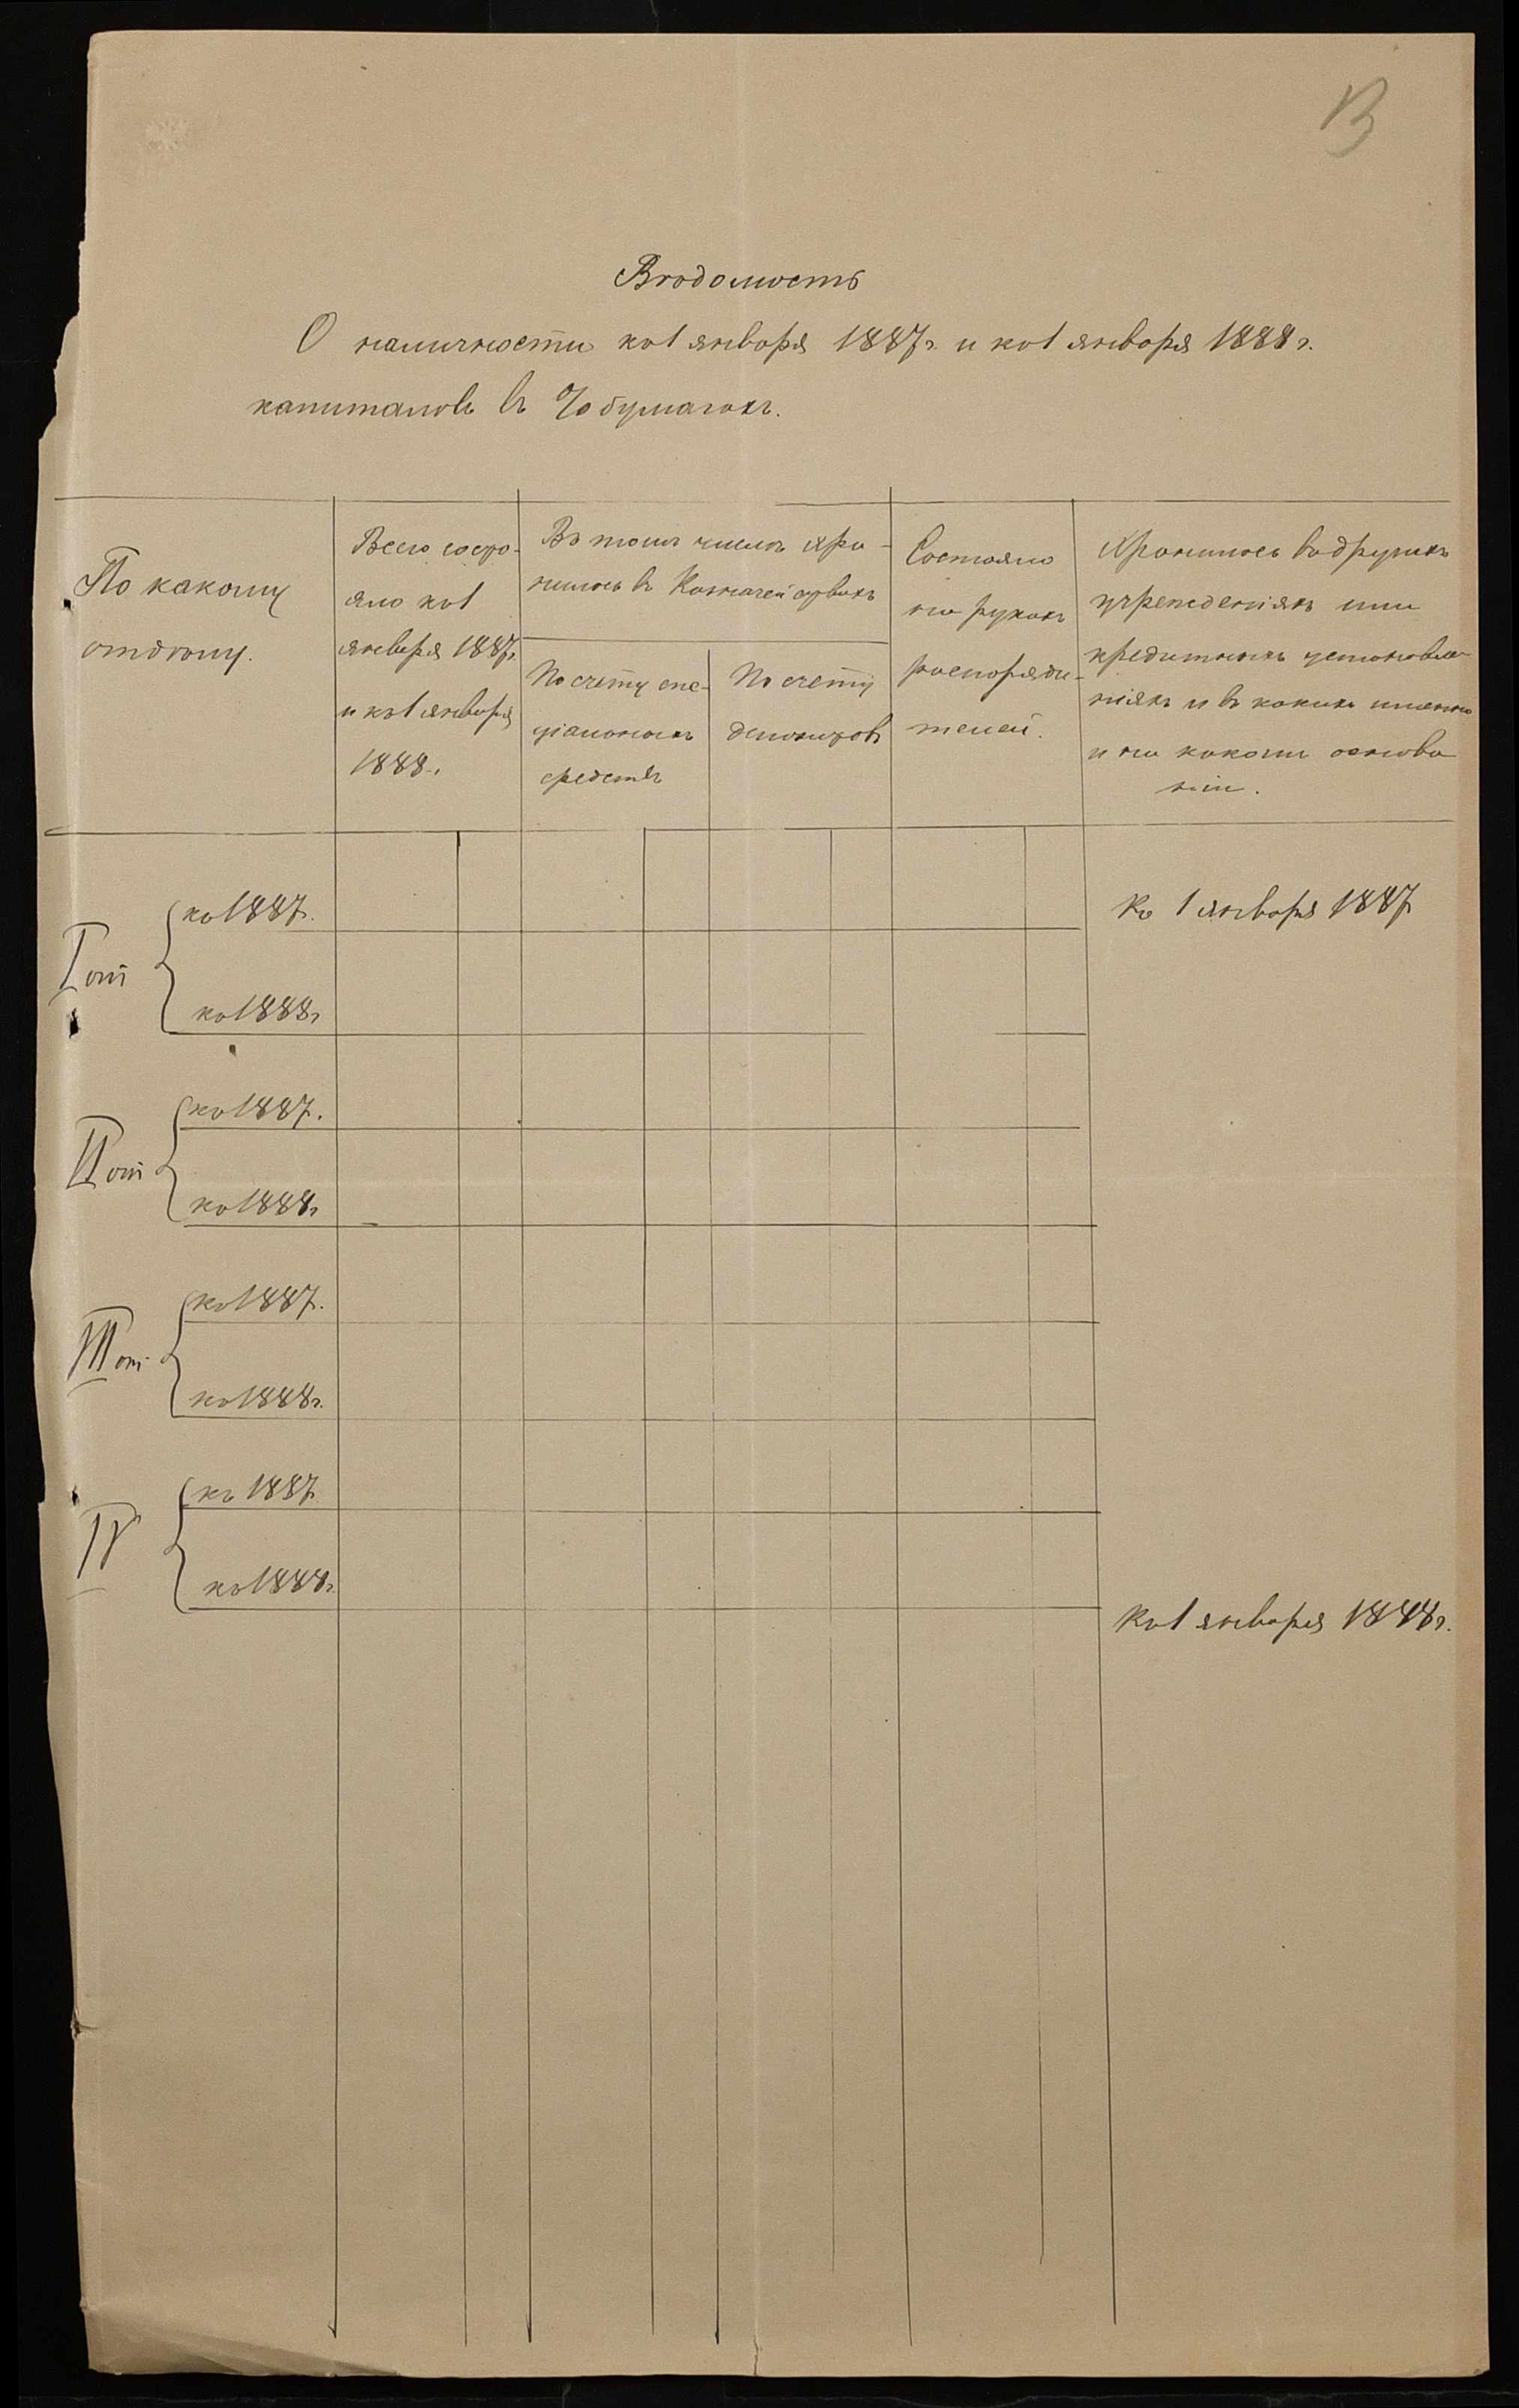 В
Вѣдомость
О наличности къ 1 января 1887 г. и къ 1 января 1888 г.
капиталовъ въ % бумагахъ.
По какому
отдѣлу.
Всего состо-
яло къ 1
января 1887 г.
и къ 1 января
1888 г.
Въ томъ числѣ хра-
нилось въ Казначействахъ
По счету спе-
ціальныхъ
средствъ
По счету
депозитовъ
Состояло
на рукахъ
распоряди-
телей.
Хранилось въ другихъ
учрежденіяхъ или
кредитныхъ установле-
ніяхъ и въ какихъ именно
и на какомъ основа
ніи.
I от
къ 1887 г.
къ 1888 г.
II от
къ 1887.
къ 1888 г.
III от.
къ 1887.
къ 1888 г.
IV
къ 1887
къ 1888 г.
Къ 1 января 1887
Къ 1 января 1888 г.